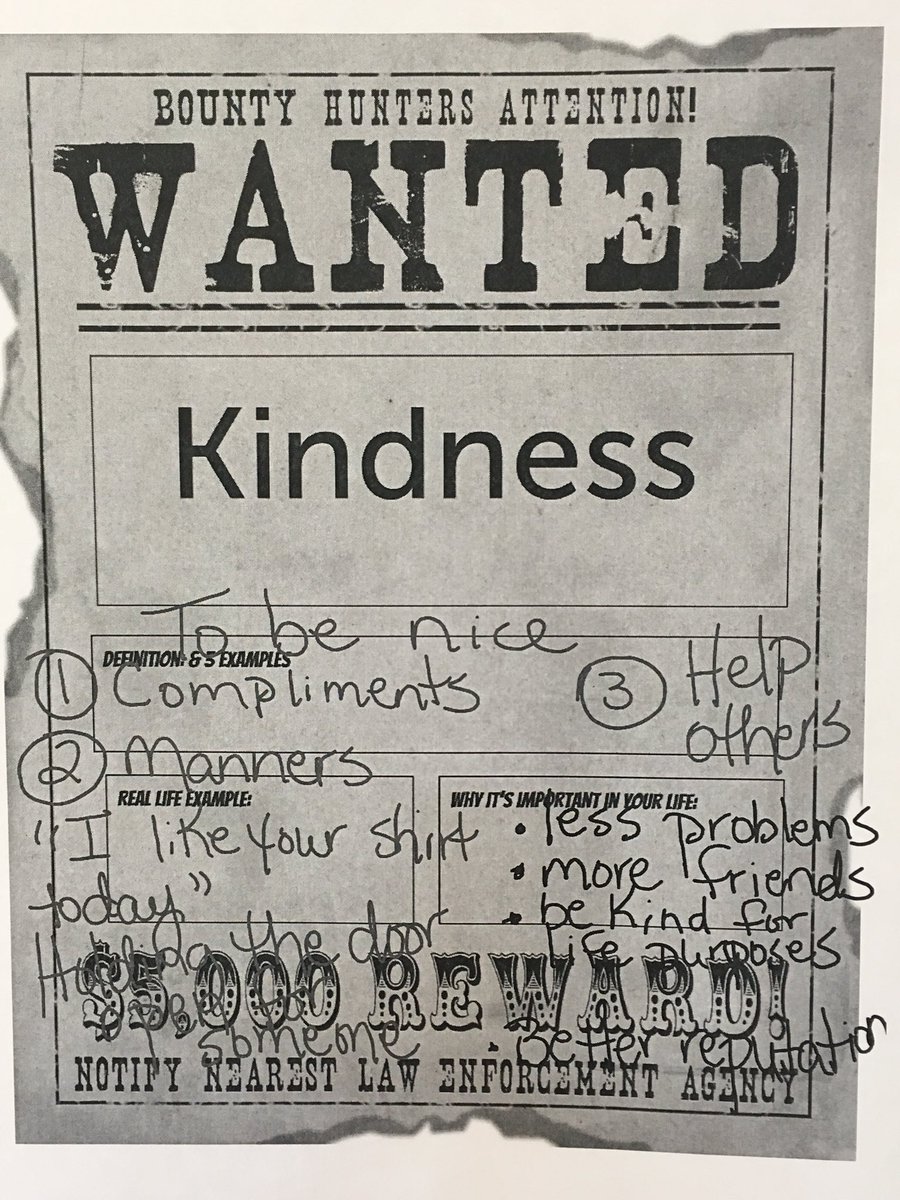 BOUNTY HUNTERS ATTENTION!
WANTED
Kindness
To be nice
DEFINITION: & 3 EXAMPLES
① Compliments
② Manners
③ Help
others
REAL LIFE EXAMPLE:
"I like your shirt
today"
the door
someone
WHY IT'S IMPORTANT IN YOUR LIFE:
• less problems
• more friends
• be kind for
life purposes
• Better reputation
$5,000 REWARD!
NOTIFY NEAREST LAW ENFORCEMENT AGENCY